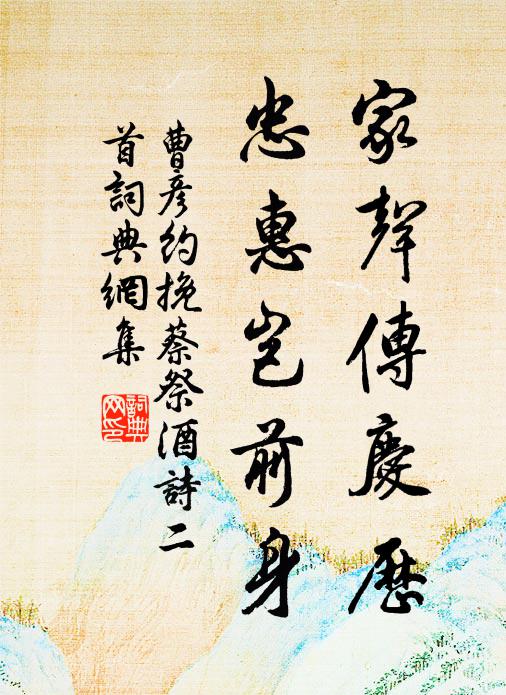 家聲傳慶歷
忠惠岂前身
曹彦約挽蔡祭酒詩二
首詞典網集
詞典
网印